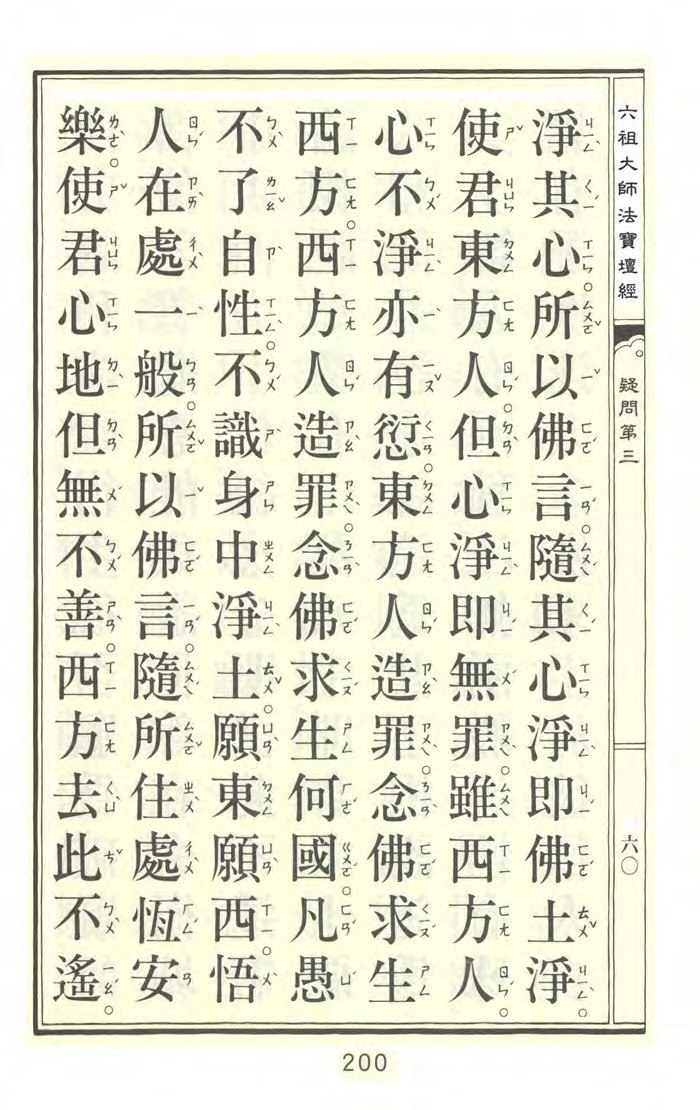 六祖大師法寶壇經
疑問第三
六〇
淨其心。所以佛言。隨其心淨即佛土淨。
使君東方人。但心淨即無罪。雖西方人。
心不淨亦有愆。東方人造罪。念佛求生
西方。西方人造罪。念佛求生何國。凡愚
不了自性。不識身中淨土。願東願西。悟
人在處一般。所以佛言。隨所住處恆安
樂。使君心地但無不善。西方去此不遙。
200